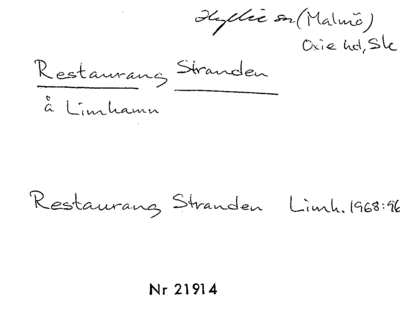 Hyllie sn (Malmö)
Oxie hd, Sk
Restaurang Stranden
å Limhamn
Restaurang Stranden Limh. 1968:96
Nr 21914